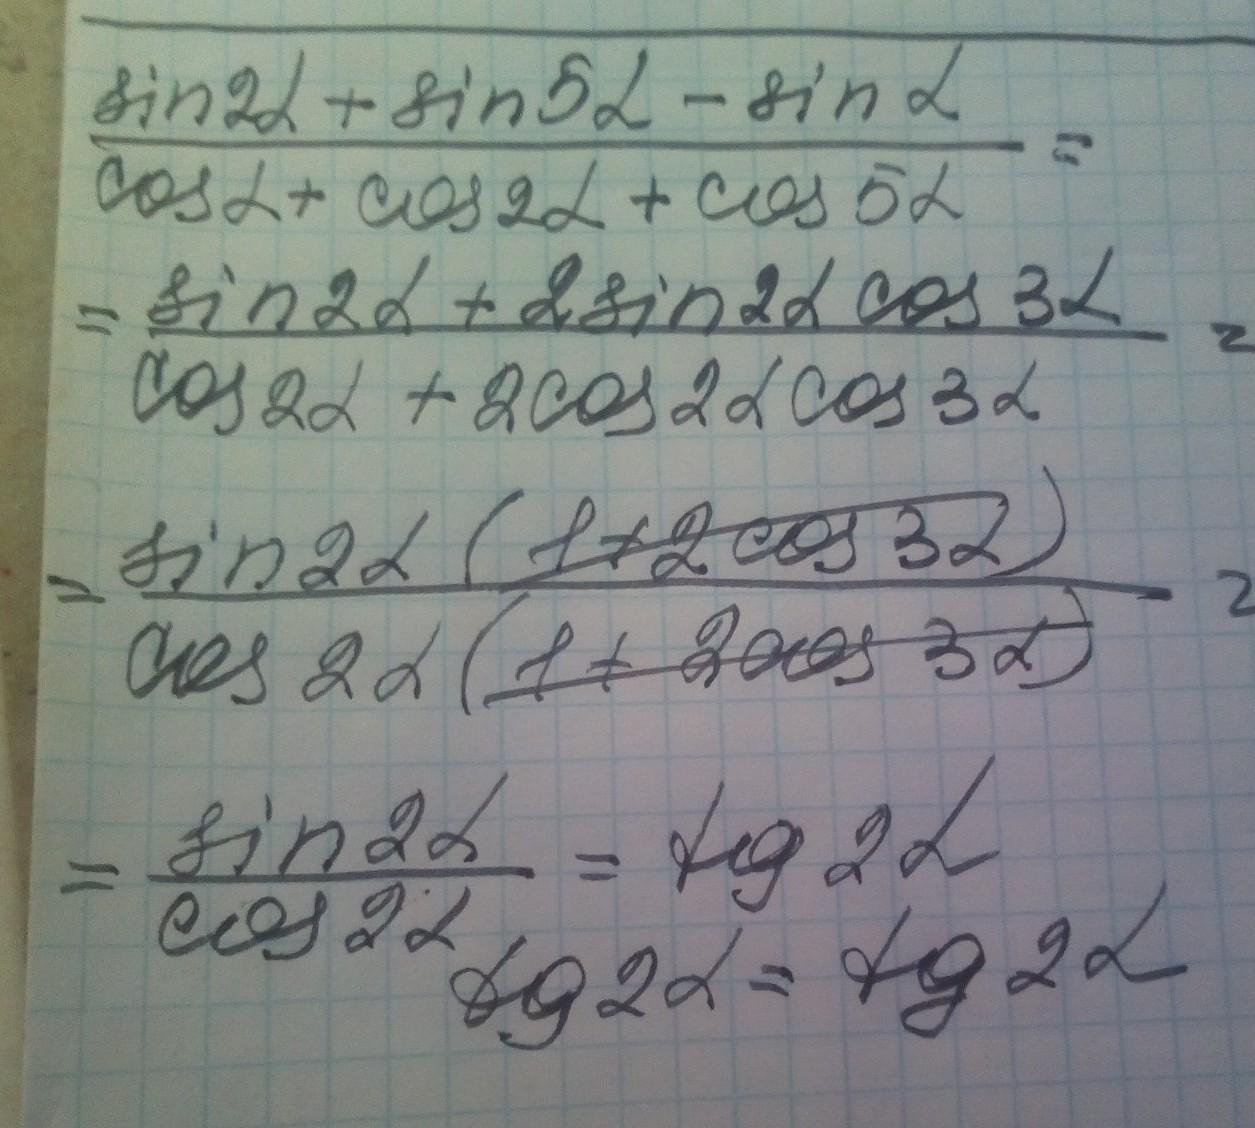 sin2α + sin5α - sinα
cosα + cos2α + cos5α =
= sin2α + 2sin2α cos3α
cos2α + 2cos2α cos3α =
= sin2α (1+2cos3α)
cos2α (1+2cos3α) =
= sin2α
cos2α = tg2α
tg2α = tg2α